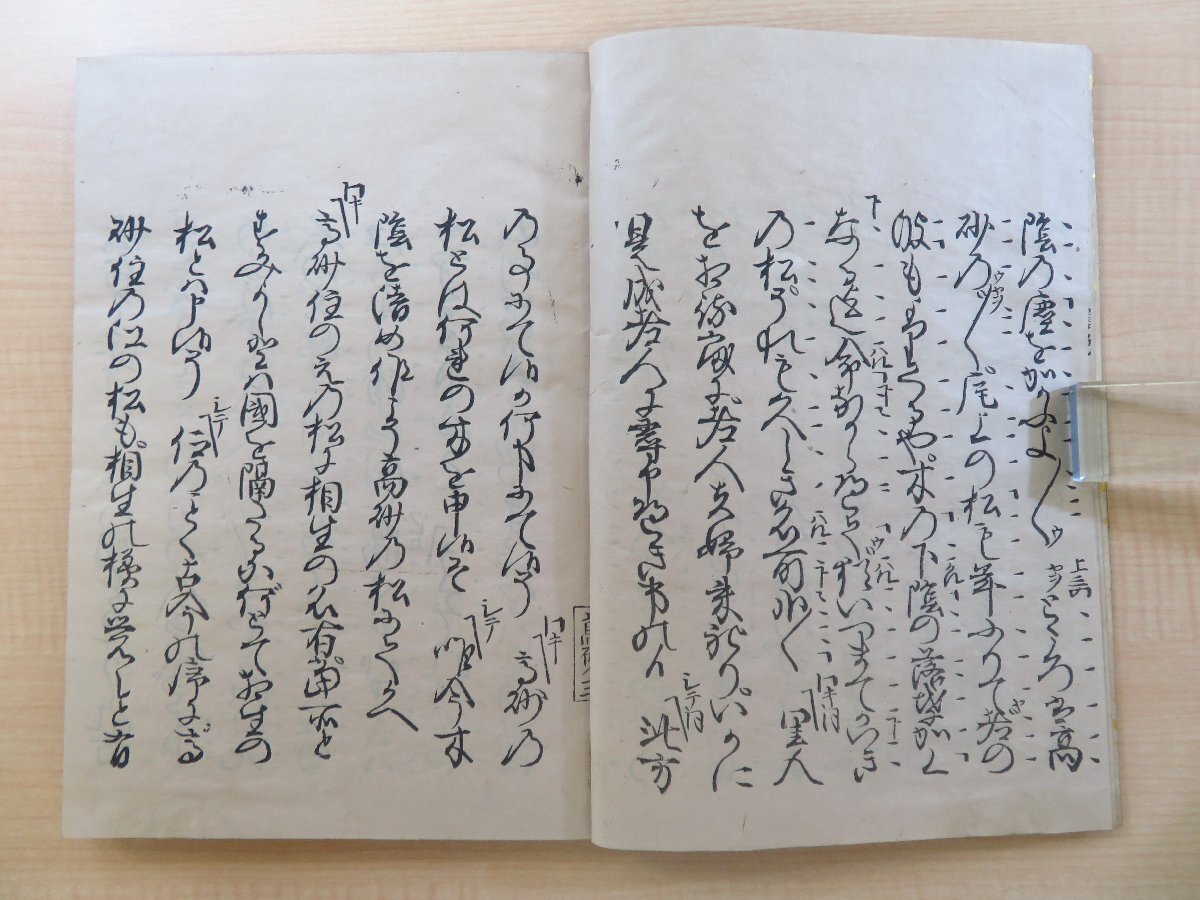 陰乃塵をかかふよ〱 ところは高
砂乃〱尾上の松も年ふりて老の
波もよりくるや木の下陰の落葉かく
なる迄命ながらへて猶いつまてかいき
乃松それも久しき名所哉〱 ワキ 里人
を相待處に老人夫婦来れりいかに
是成老人に尋申へき事の候 シテ 此方
乃事にて候か何事にて候ぞ ワキ 高砂乃
松とは何れの木を申候ぞ シテ 唯今木
陰を清め候こそ高砂乃松にて候へ
ワキ 高砂住の江乃松に相生の名有當所と
すみよしとハ國を隔たるに何とて相生の
松とハ申候ぞ シテ 仰乃ことく古今の序に高
砂住乃江の松も相生の様に覚えと有